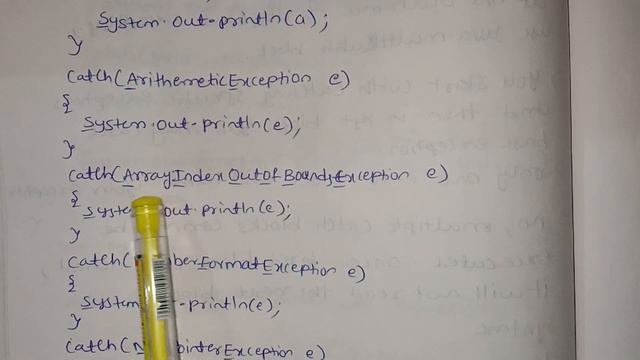 System.out.println(a);
}
catch(ArithemeticException e)
{
System.out.println(e);
}
catch(ArrayIndexOutOfBoundsException e)
{
out.println(e);
}
catch( FormatException e)
{
System println(e);
}
catch( Exception e)